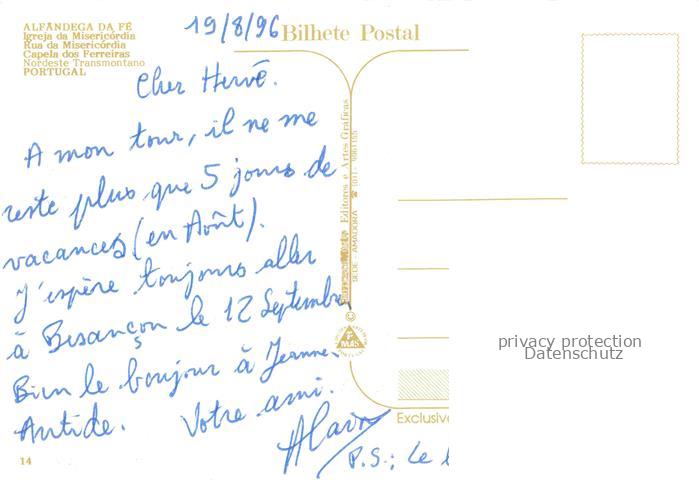 ALFÂNDEGA DA FÉ
Igreja da Misericórdia
Rua da Misericórdia
Capela dos Ferreiras
Nordeste Transmontano
PORTUGAL
19/8/96
Bilhete Postal
Cher Hervé.
A mon tour, il ne me
reste plus que 5 jours de
vacances (en Août).
J'espère toujours aller
à Besançon le 12 Septembre
Bien le bonjour à Jeanne-
Antide. Votre ami.
Alain
P.S.: Le
14
Editores e Artes Gráficas
SEDE - AMADORA
MAS
Exclusiv
privacy protection
Datenschutz